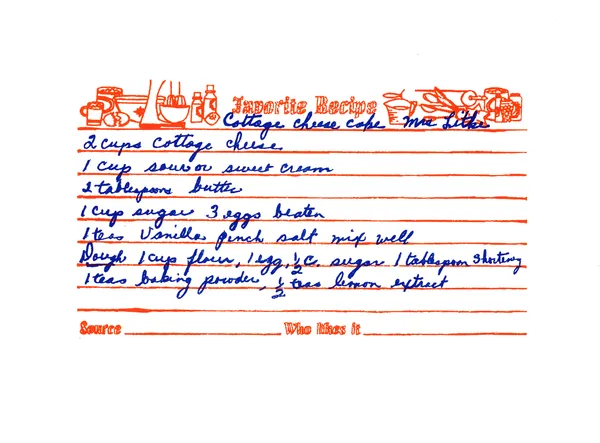 Favorite Recipe
Cottage cheese cake Mrs Litke
2 cups cottage cheese
1 cup sour or sweet cream
2 tablespoons butter
1 cup sugar 3 eggs beaten
1 teas Vanilla pinch salt mix well
Dough 1 cup flour, 1 egg, ½ c. sugar 1 tablespoon shortening
1 teas baking powder, ½ teas lemon extract
Source Who likes it